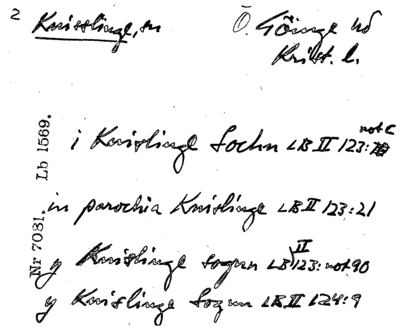 2 Knisslinge, sn Ö. Göinge hd
Krist. l.
Lb 1569.
i Knislinge Sochn LB II 123: not C
in parochia Knislinge LB II 123:21
Nr 7081.
y Knislinge sogun LB II 123: not 90
y Knislinge Sogun LB II 124:9